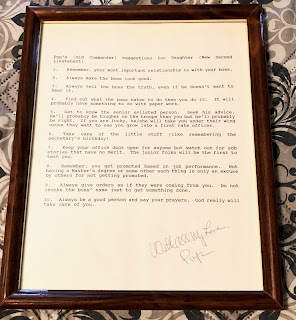 Pop's (old Commander) suggestions for Daughter (New Second
Lieutenant)
1. Remember, your most important relationship is with your boss.
2. Always make the boss look good.
3. Always tell your boss the truth, even if he doesn't want to
hear it.
4. Find out what the boss hates to do then you do it. It will
probably have something to do with paper work.
5. Get to know the senior enlisted person. Seek his advice.
He'll probably be tougher on the troops than you but he'll probably
be right. If you are lucky, he/she will take you under their wing
cause they want to see you grow into a first rate officer.
6. Take care of the little stuff (like remembering the
secretary's birthday)
7. Keep your office door open for anyone but watch out for sob
stories that have no merit. The junior folks will be the first to
test you.
8. Remember, you get promoted based on job performance. Not
having a Master's degree or some other such thing is only an excuse
by others for not getting promoted.
9. Always give orders as if they were coming from you. Do not
invoke the boss' name just to get something done.
10. Always be a good person and say your prayers. God really will
take care of you.
With all my Love
Pop